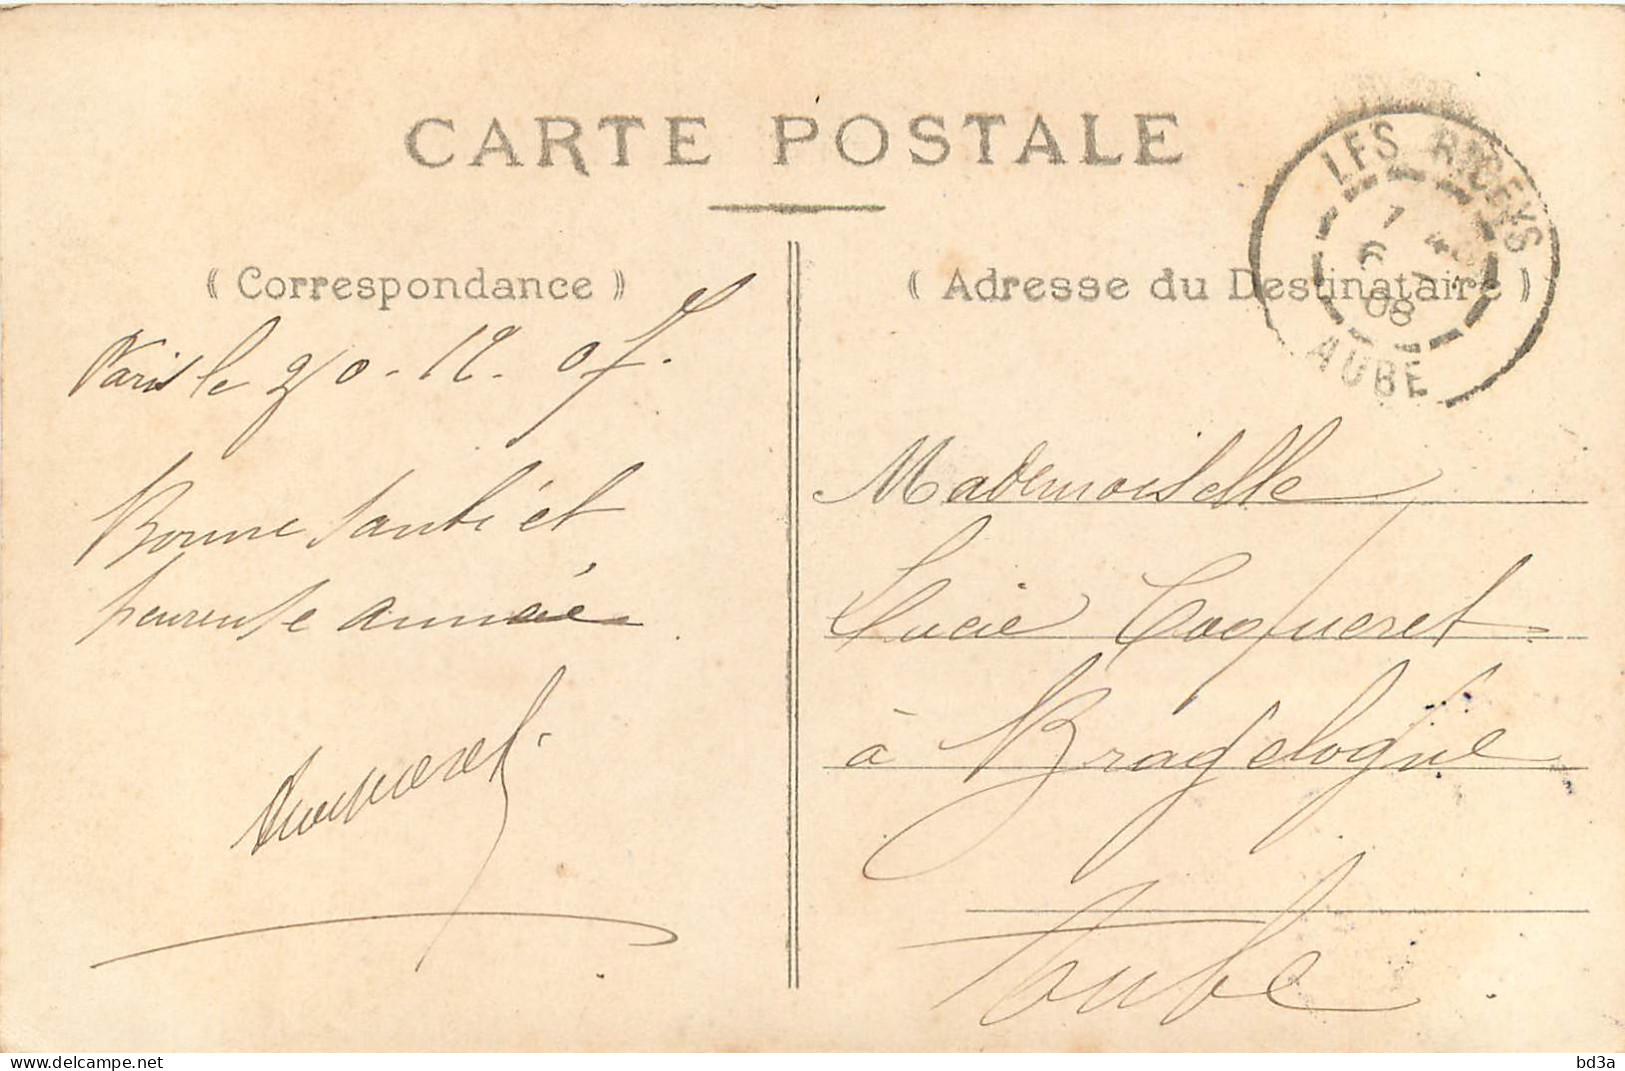 CARTE POSTALE
⸨ Correspondance ⸩
Paris le 30-12-07.
Bonne Santé et
heureuse année.
⸨ Adresse du Destinataire ⸩
LES RICEYS
08
AUBE
Mademoiselle
Lucie Coqueret
à Bragelogne
Aube
Delcampe.net
bd3a